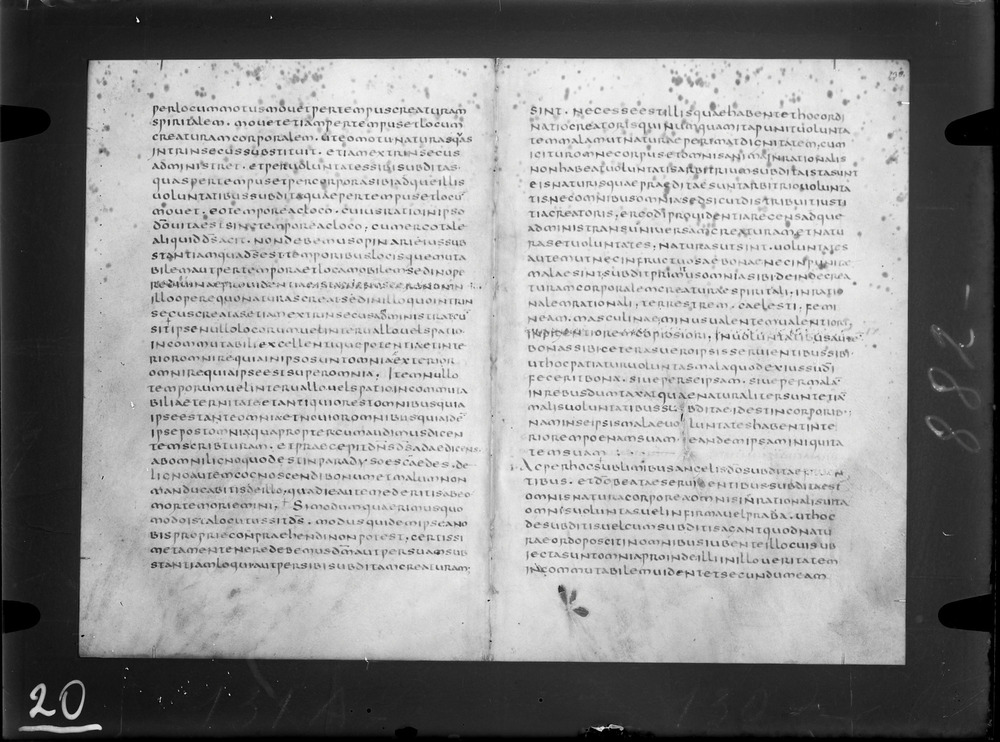 perlocummotusmouetpertempuscreaturam
spiritalem. mouetetiampertempusetlocum
creaturamcorporalem. uteomotunaturasquas
intrinsecussubstituit. etiamextrinsecus
administret. etperuoluntatessibisubditas.
quaspertempusetpercorporasibiadqueillis
uoluntatibussubditaquaepertempusetlocū
mouet. eotemporeacloco. cuiusratioinipso
dōuitaestsinetemporeacloco, cumergotale
aliquiddsacit. nondebemusopinarieiussub
stantiamquadsesttemporibuslocisquemuta
bilemautpertemporaetlocamobilemsedinope
rediuinaeprouidentiae
illooperequonaturascreatsedinilloquointrin
secuscreatasetiamextrinsecusadministratcū
sitipsenullolocorumuelinteruallouelspatio
incommutabiliexcellentiquepotentiaetinte
rioromnirequiainipsosuntomniaetexterior
omnirequiaipseestsuperomnia. Itemnullo
temporumuelinteruallouelspatioincommuta
biliaeternitateetantiquiorestomnibusquia
ipseestanteomniaetnouioromnibusquiaidē
ipsepostomniaquapropter cumaudimusdicen
temscripturam. etpraecepitdn̄sdsadaedicens
abomnilignoquodestinparadysoescaedes. de
lignoautemcognoscendibonumetmalumnon
manducabitisdeillo, quadieautemederitisabeo
mortemoriemini, Simodumquaerimusquo
modoistalocutussitds. modusquidemipseano
bisproprieconpraehendinonpotest, certissi
metamentenerédebemusdmautpersuamsub
stantiamloquiautpersibisubditamcreaturam;
sint. necesseestillisquaehabentethocordi
natiocreatorisquinumquamitapunituolunta
temmalamutnaturaeperimatdignitatem, cum
igituromnecorpusetomnisanimainrationalis
nonhabeatuoluntatisarbitriumsubditaistasunt
eisnaturisquaepraeditaesuntarbitriouolunta
tisnecomnibusomniasedsicutdistribuitiusti
tiacreatoris, ergodīprouidentiaregensadque
administransuniuersamcreaturametnatu
rasetuoluntates, naturasutsint. uoluntates
autemutnecinfructuosaebonaenecinpunitae
malaesintsubditprimūsomniasibideindecrea
turamcorporalemcreaturaespiritali, inratio
nalemrationali, terrestrem. caelesti, femi
neam. masculinaeminusualentemualentiori,
indigentioremcopiosiori, inuoluntatibusautē
bonassibiceterasueroipsisseruientibussibi
uthocpatiaturuoluntasmalaquodexiussudī
feceritbona. siueperseipsam. siuepermalā
inrebusdumtaxatquaenaturalitersuntetiā
malisuoluntatibussubditaeidestincorporib;
naminseipsismalaeuoluntateshabentinte
riorempoenamsuam eandemipsaminiquita
temsuam
Acperhocsublimibusangelisdōsubditaefruen
tibus. etdōbeataeseruientibussubditaest
omnisnaturacorporeaomnisinrationalisuita
omnisuoluntasuelinfirmauelpraba. uthoc
desubditisuelcumsubditisagantquodnatu
raeordoposcitinomnibusiubenteillocuisub
iectasuntomniaproindeilliinilloueritatem
incommutabilemuidentetsecundumeam
20
882